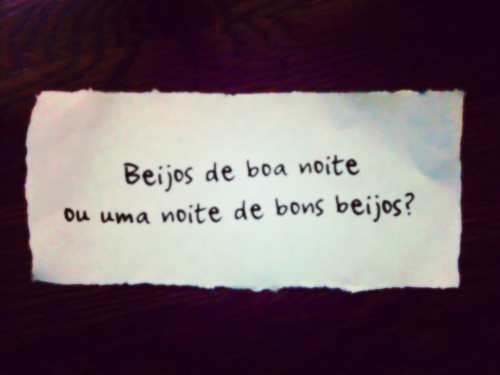 Beijos de boa noite
ou uma noite de bons beijos?